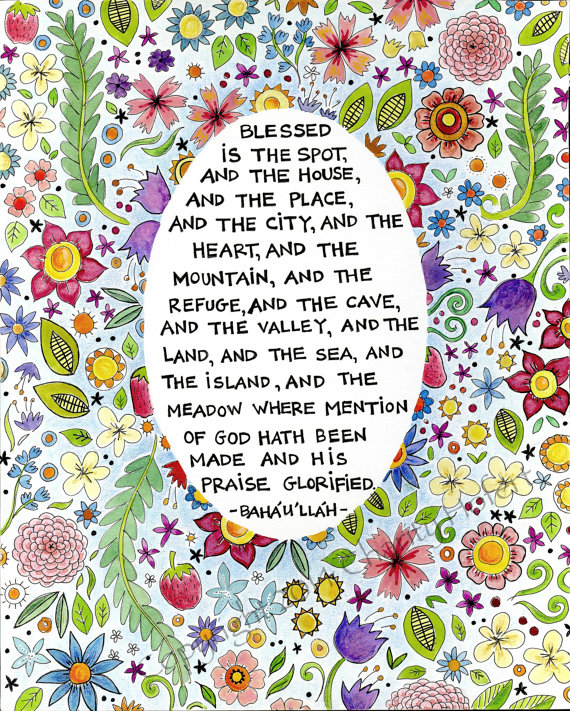 BLESSED
IS THE SPOT,
AND THE HOUSE,
AND THE PLACE,
AND THE CITY, AND THE
HEART, AND THE
MOUNTAIN, AND THE
REFUGE, AND THE CAVE,
AND THE VALLEY, AND THE
LAND, AND THE SEA, AND
THE ISLAND, AND THE
MEADOW WHERE MENTION
OF GOD HATH BEEN
MADE AND HIS
PRAISE GLORIFIED.
-BAHÁ'U'LLÁH-